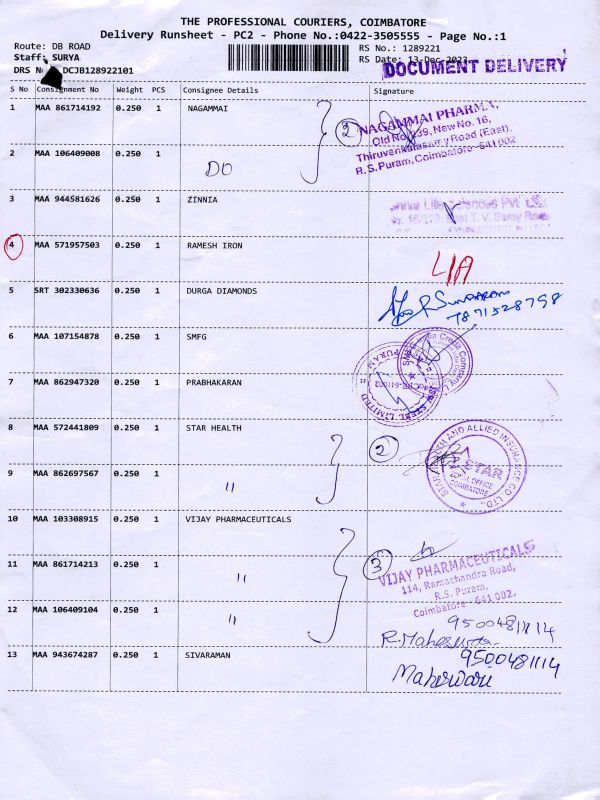 THE PROFESSIONAL COURIERS, COIMBATORE
Delivery Runsheet - PC2 - Phone No.:0422-3505555 - Page No.:1
Route: DB ROAD
RS No.: 1289221
Staff: SURYA
RS Date: 13-Dec-2023
DOCUMENT DELIVERY
DRS DCJB128922101
S No Consignment No Weight PCS Consignee Details Signature
1 MAA 861714192 0.250 1 NAGAMMAI
2
NAGAMMAI
Old No. 239, New No. 16,
Thiruvenkatasamy Road (East),
R.S. Puram, Coimbatore - 641 002
2 MAA 106409008 0.250 1 DO
3 MAA 944581626 0.250 1 ZINNIA
T. V. Samy Road
4 MAA 571957503 0.250 1 RAMESH IRON
5 SRT 302330636 0.250 1 DURGA DIAMONDS
R SUNDARAM
7871528798
6 MAA 107154878 0.250 1 SMFG
SMFG India Credit Company
PURAM
LIMITED
7 MAA 862947320 0.250 1 PRABHAKARAN
8 MAA 572441809 0.250 1 STAR HEALTH
2
STAR HEALTH AND ALLIED INSURANCE CO. LTD.
STAR
OFFICE
COIMBATORE
9 MAA 862697567 0.250 1 "
10 MAA 103308915 0.250 1 VIJAY PHARMACEUTICALS
3
VIJAY PHARMACEUTICALS
114, Ramachandra Road,
R.S. Puram,
Coimbatore - 641 002.
11 MAA 861714213 0.250 1 "
12 MAA 106409104 0.250 1 "
9500481114
13 MAA 943674287 0.250 1 SIVARAMAN
9500481114
Maheswari